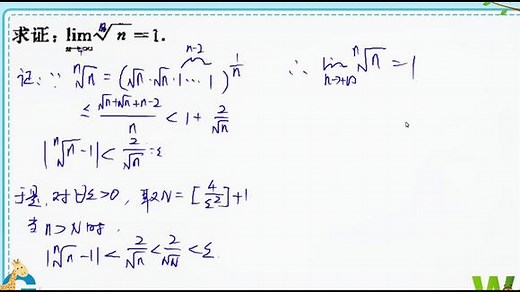 求证：lim_{n→∞} ⁿ√n = 1.
证：∵ ⁿ√n = (√n·√n·1⋯1)^{1/n} n-2
≤ (√n+√n+n-2)/n < 1 + 2/√n
|ⁿ√n -1| < 2/√n = ε
于是，对∀ε>0，取N=[4/ε²]+1
当 n>N 时，
|ⁿ√n -1| < 2/√n < 2/√N < ε
∴ lim_{n→+∞} ⁿ√n = 1